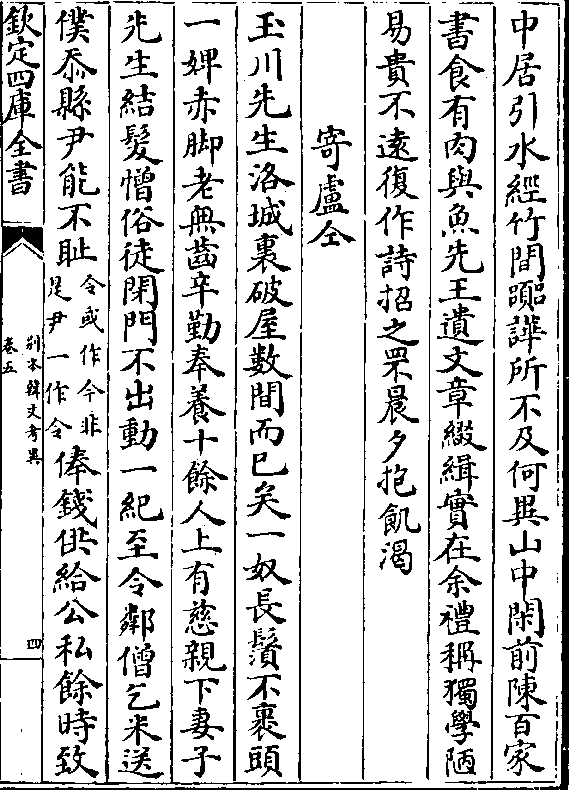 中居引水經竹間囂譁所不及何異山中閑前陳百家
書食有肉與魚先王遺文章綴緝實在余禮稱獨學陋
易貴不遠復作詩招之罘晨夕抱飢渴
寄盧仝
玉川先生洛城裏破屋數間而已矣一奴長鬚不裹頭
一婢赤脚老無齒辛勤奉養十餘人上有慈親下妻子
先生結髮憎俗徒閉門不出動一紀至令鄰僧乞米送
僕忝縣尹能不耻令或作今非是尹一作令俸錢供給公私餘時致
欽定四庫全書
別本韓文考異
卷五
四